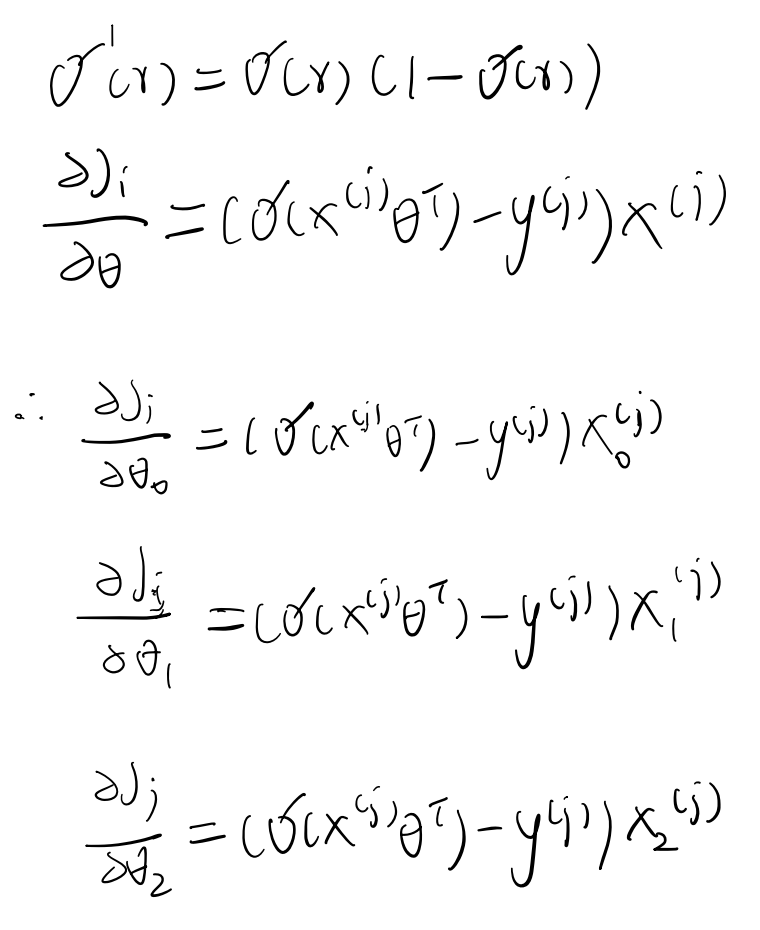 σ'(r) = σ(r) (1 − σ(r))
∂J_i/∂θ = (σ(x^(j) θ^T) − y^(j)) x^(j)
∴ ∂J_j/∂θ_0 = (σ(x^(j) θ^T) − y^(j)) x_0^(j)
∂J_j/∂θ_1 = (σ(x^(j) θ^T) − y^(j)) x_1^(j)
∂J_j/∂θ_2 = (σ(x^(j) θ^T) − y^(j)) x_2^(j)